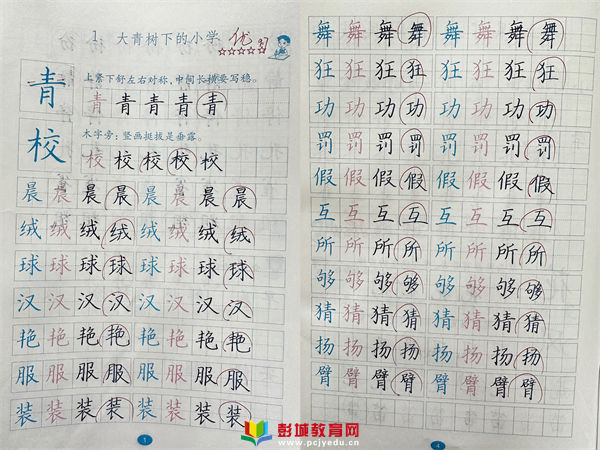 1. 大青树下的小学 优
青
上紧下舒左右对称,中间长横要写稳。
青 青 青 青 青
校
木字旁:竖画挺拔是垂露。
校 校 校 校 校
晨 晨 晨 晨 晨 晨 晨 晨
绒 绒 绒 绒 绒 绒 绒 绒
球 球 球 球 球 球 球 球
汉 汉 汉 汉 汉 汉 汉 汉
艳 艳 艳 艳 艳 艳 艳 艳
服 服 服 服 服 服 服 服
装 装 装 装 装 装 装 装
1
舞 舞 舞 舞 舞 舞 舞 舞
狂 狂 狂 狂 狂 狂 狂 狂
功 功 功 功 功 功 功 功
罚 罚 罚 罚 罚 罚 罚 罚
假 假 假 假 假 假 假 假
互 互 互 互 互 互 互 互
所 所 所 所 所 所 所 所
够 够 够 够 够 够 够 够
猜 猜 猜 猜 猜 猜 猜 猜
扬 扬 扬 扬 扬 扬 扬 扬
臂 臂 臂 臂 臂 臂 臂 臂
4
彭城教育网
www.pcjyedu.cn